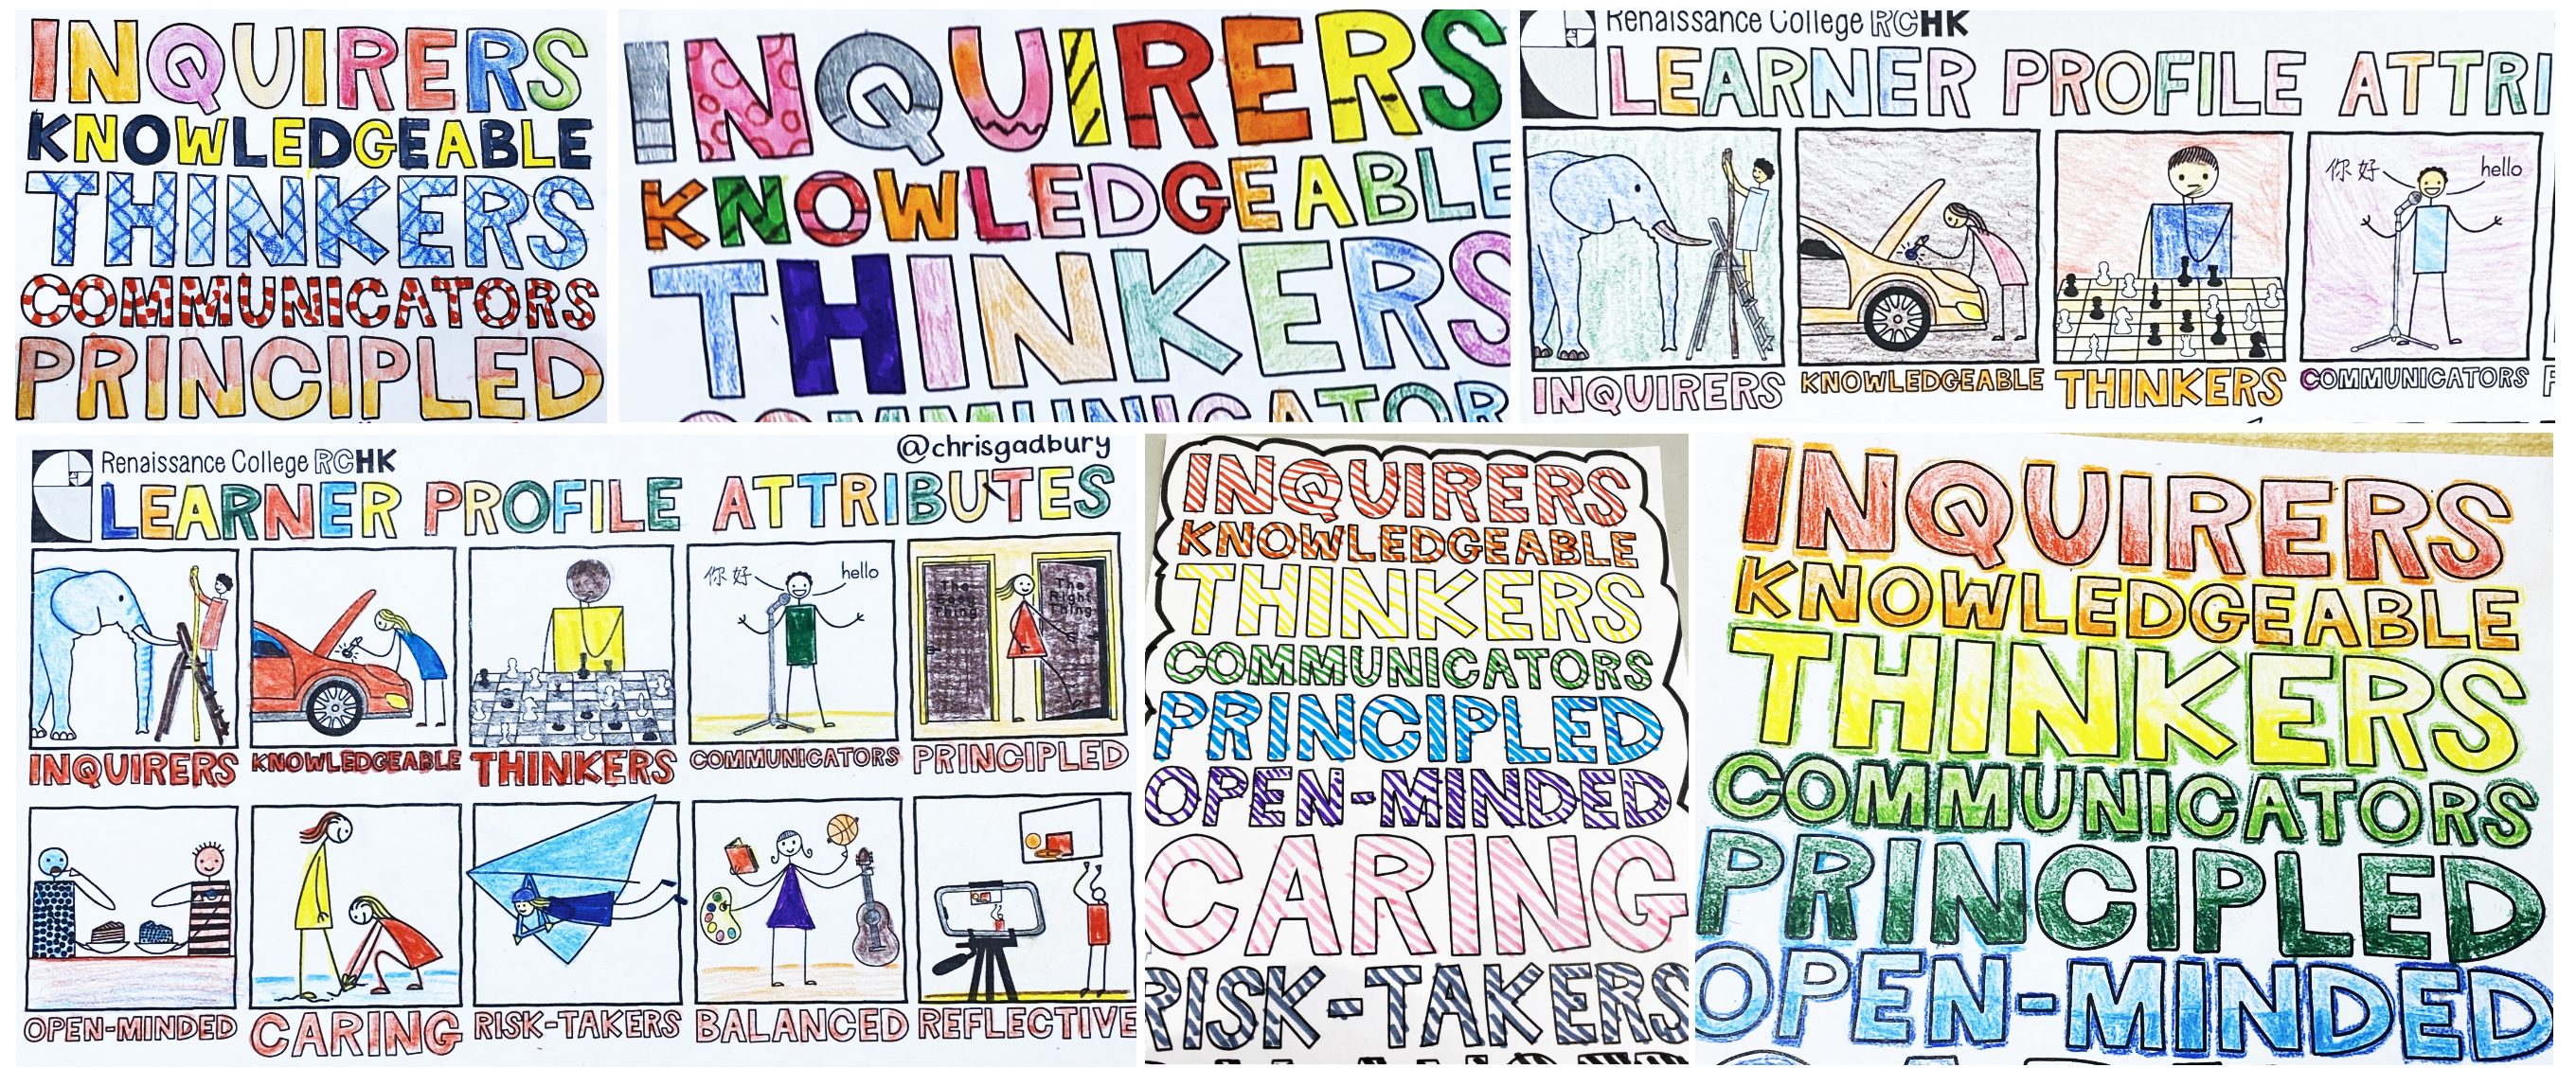 INQUIRERS
KNOWLEDGEABLE
THINKERS
COMMUNICATORS
PRINCIPLED
INQUIRERS
KNOWLEDGEABLE
THINKERS
COMMUNICATOR
Renaissance College RCHK
LEARNER PROFILE ATTRI
你好 hello
INQUIRERS KNOWLEDGEABLE THINKERS COMMUNICATORS
@chrisgadbury
Renaissance College RCHK
LEARNER PROFILE ATTRIBUTES
你好 hello
The Easy Thing
The Right Thing
INQUIRERS KNOWLEDGEABLE THINKERS COMMUNICATORS PRINCIPLED
OPEN-MINDED CARING RISK-TAKERS BALANCED REFLECTIVE
INQUIRERS
KNOWLEDGEABLE
THINKERS
COMMUNICATORS
PRINCIPLED
OPEN-MINDED
CARING
RISK-TAKERS
INQUIRERS
KNOWLEDGEABLE
THINKERS
COMMUNICATORS
PRINCIPLED
OPEN-MINDED